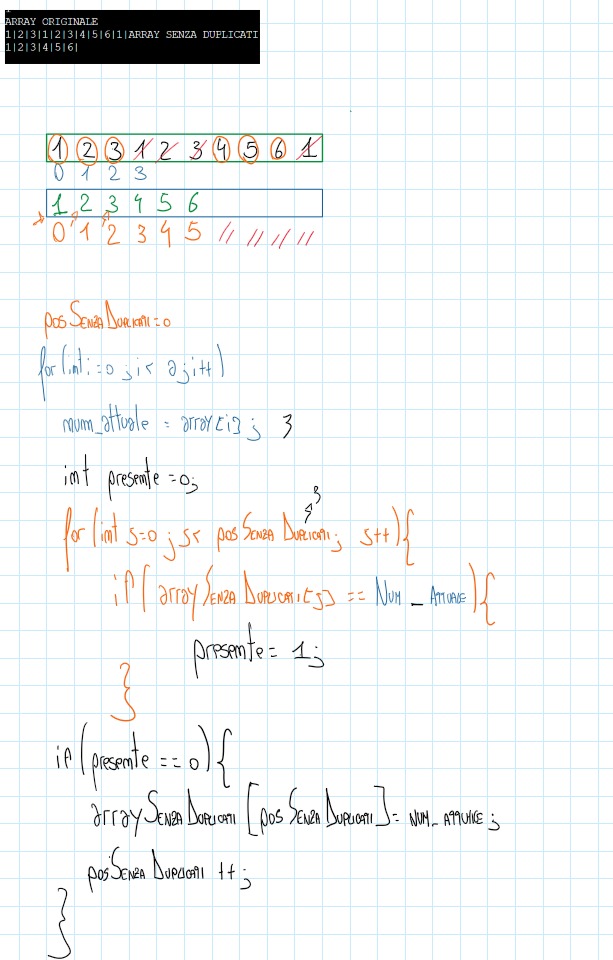 ARRAY ORIGINALE
1|2|3|1|2|3|4|5|6|1|ARRAY SENZA DUPLICATI
1|2|3|4|5|6|
1 2 3 1 2 3 4 5 6 1
0 1 2 3
1 2 3 4 5 6
0 1 2 3 4 5 // // // //
posSenzaDuplicati=0
for(int i=0; i< a; i++)
num_attuale = array[i]; 3
int presente =0;
3
for(int s=0; s< posSenzaDuplicati; s++){
if(arraySenzaDuplicati[j] == Num_Attuale){
presente= 1;
}
if(presente == 0){
arraySenzaDuplicati[posSenzaDuplicati]= num_attuale;
posSenzaDuplicati ++;
}